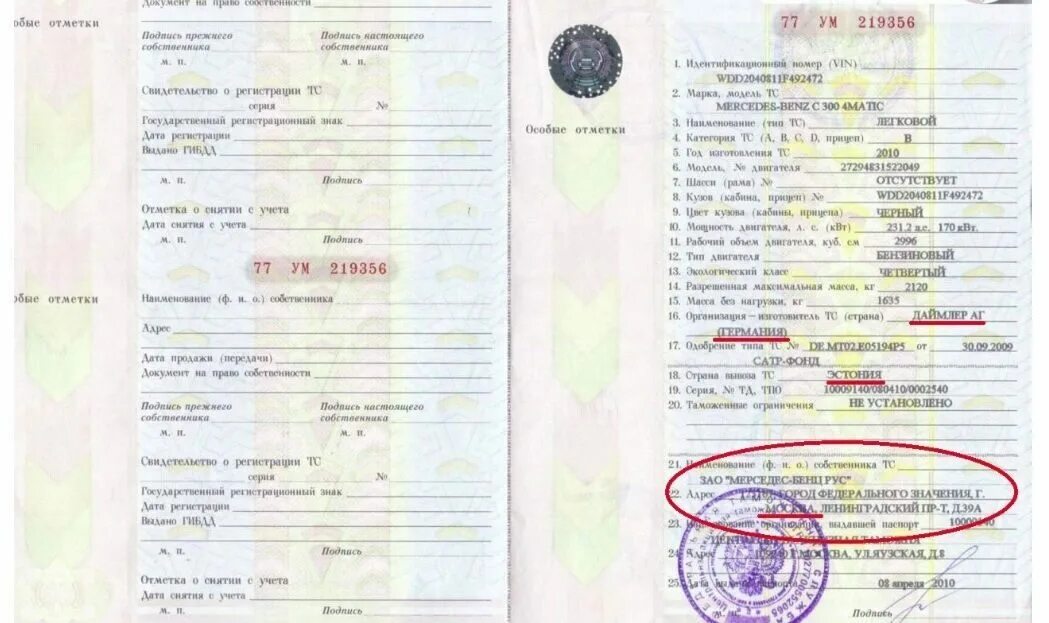 обые отметки
Документ на право собственности
Подпись прежнего собственника
Подпись настоящего собственника
м. п.
м. п.
Свидетельство о регистрации ТС
серия №
Государственный регистрационный знак
Дата регистрации
Выдано ГИБДД
м. п. Подпись
Отметка о снятии с учета
Дата снятия с учета
м. п. Подпись
77 УМ 219356
обые отметки
Наименование (ф. и. о.) собственника
Адрес
Дата продажи (передачи)
Документ на право собственности
Подпись прежнего собственника
Подпись настоящего собственника
м. п.
м. п.
Свидетельство о регистрации ТС
серия №
Государственный регистрационный знак
Дата регистрации
Выдано ГИБДД
м. п. Подпись
Отметка о снятии с учета
Дата снятия с учета
м. п. Подпись
Особые отметки
77 УМ 219356
1. Идентификационный номер (VIN)
WDD2040811F492472
2. Марка, модель ТС
MERCEDES-BENZ C 300 4MATIC
3. Наименование (тип ТС) ЛЕГКОВОЙ
4. Категория ТС (A, B, C, D, прицеп) B
5. Год изготовления ТС 2010
6. Модель, № двигателя 27294831522049
7. Шасси (рама) № ОТСУТСТВУЕТ
8. Кузов (кабина, прицеп) № WDD2040811F492472
9. Цвет кузова (кабины, прицепа) ЧЕРНЫЙ
10. Мощность двигателя, л. с. (кВт) 231.2 л.с. 170 кВт.
11. Рабочий объем двигателя, куб. см 2996
12. Тип двигателя БЕНЗИНОВЫЙ
13. Экологический класс ЧЕТВЕРТЫЙ
14. Разрешенная максимальная масса, кг 2120
15. Масса без нагрузки, кг 1635
16. Организация—изготовитель ТС (страна) ДАЙМЛЕР АГ
(ГЕРМАНИЯ)
17. Одобрение типа ТС № DE.MT02.E05194P5 от 30.09.2009
САТР-ФОНД
18. Страна вывоза ТС ЭСТОНИЯ
19. Серия, № ТД, ТПО 10009140/080410/0002540
20. Таможенные ограничения НЕ УСТАНОВЛЕНО
21. Наименование (ф. и. о.) собственника ТС
ЗАО "МЕРСЕДЕС-БЕНЦ РУС"
22. Адрес ГОРОД ФЕДЕРАЛЬНОГО ЗНАЧЕНИЯ, Г.
МОСКВА, ЛЕНИНГРАДСКИЙ ПР-Т, Д.39А
23. организации, выдавшей паспорт 10009140
ТАМОЖНЯ
24. Адрес Г.МОСКВА, УЛ.ЯУЗСКАЯ, Д.8
25. Дата паспорта 08 апреля 2010
Подпись